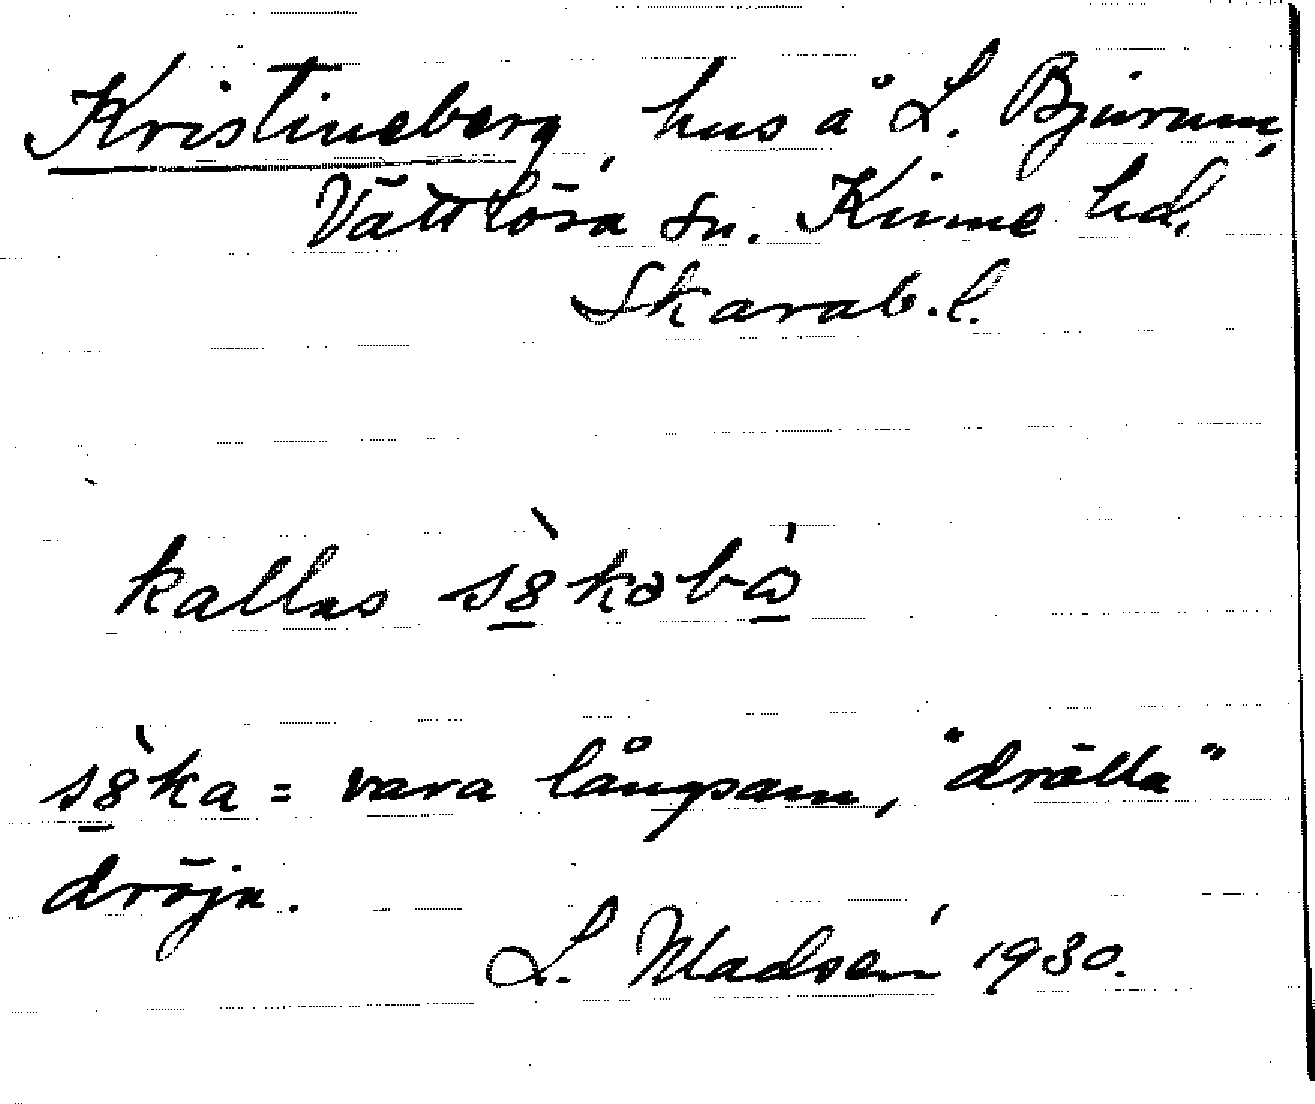 Kristineberg, hus å L. Bjurum,
Vättlösa sn. Kinne hd.
Skarab. l.
kallas
= vara långsam, "drälla"
dröja.
L. Madsén 1930.